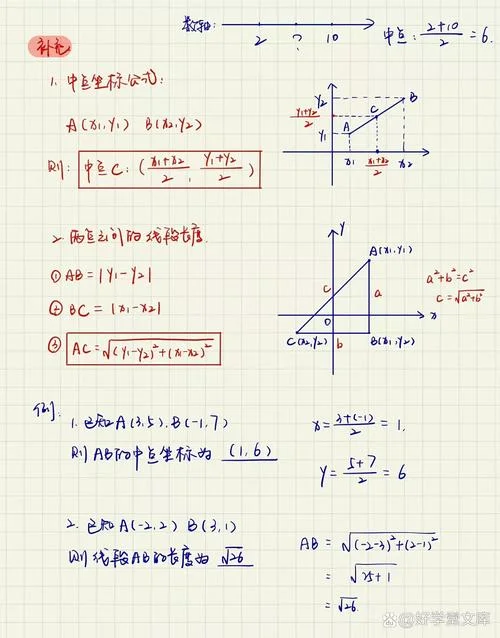 数轴:
2 ? 10
中点: (2+10)/2 = 6.
补充
1. 中点坐标公式:
A(x₁,y₁) B(x₂,y₂)
则: 中点C: ((x₁+x₂)/2, (y₁+y₂)/2)
y₂
(y₁+y₂)/2
y₁
A C B
x₁ (x₁+x₂)/2 x₂
2. 两点之间的线段长度.
① AB = |y₁-y₂|
② BC = |x₁-x₂|
③ AC = √((y₁-y₂)²+(x₁-x₂)²)
y
A(x₁,y₁)
c a
O x
C(x₂,y₂) b B(x₁,y₂)
a²+b²=c²
c=√(a²+b²)
例:
1. 已知A(3,5), B(-1,7)
则AB的中点坐标为 (1,6)
x = (3+(-1))/2 = 1.
y = (5+7)/2 = 6
2. 已知A(-2,2) B(3,1)
则线段AB的长度为 √26
AB = √((-2-3)²+(2-1)²)
= √(25+1)
= √26.
好学堂文库